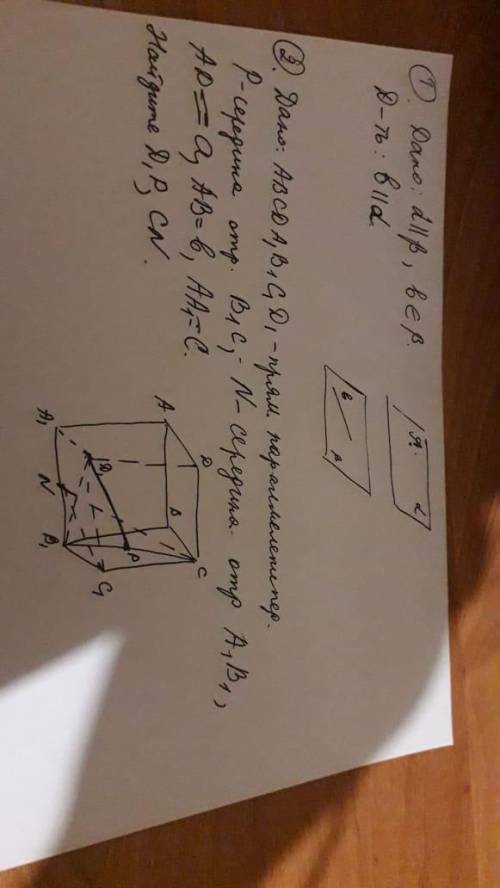 ① Дано: α∥β, b∈β.
Д-ть: b∥α.
② Дано: ABCDA₁B₁C₁D₁ - прям. параллелепипер.
P-середина отр. B₁C, N-середина отр A₁B₁,
AD=a, AB=b, AA₁=c.
Найдите D₁P, CN.
A.
α
b
β
A
D
B
C
A₁
D₁
N
P
B₁
C₁